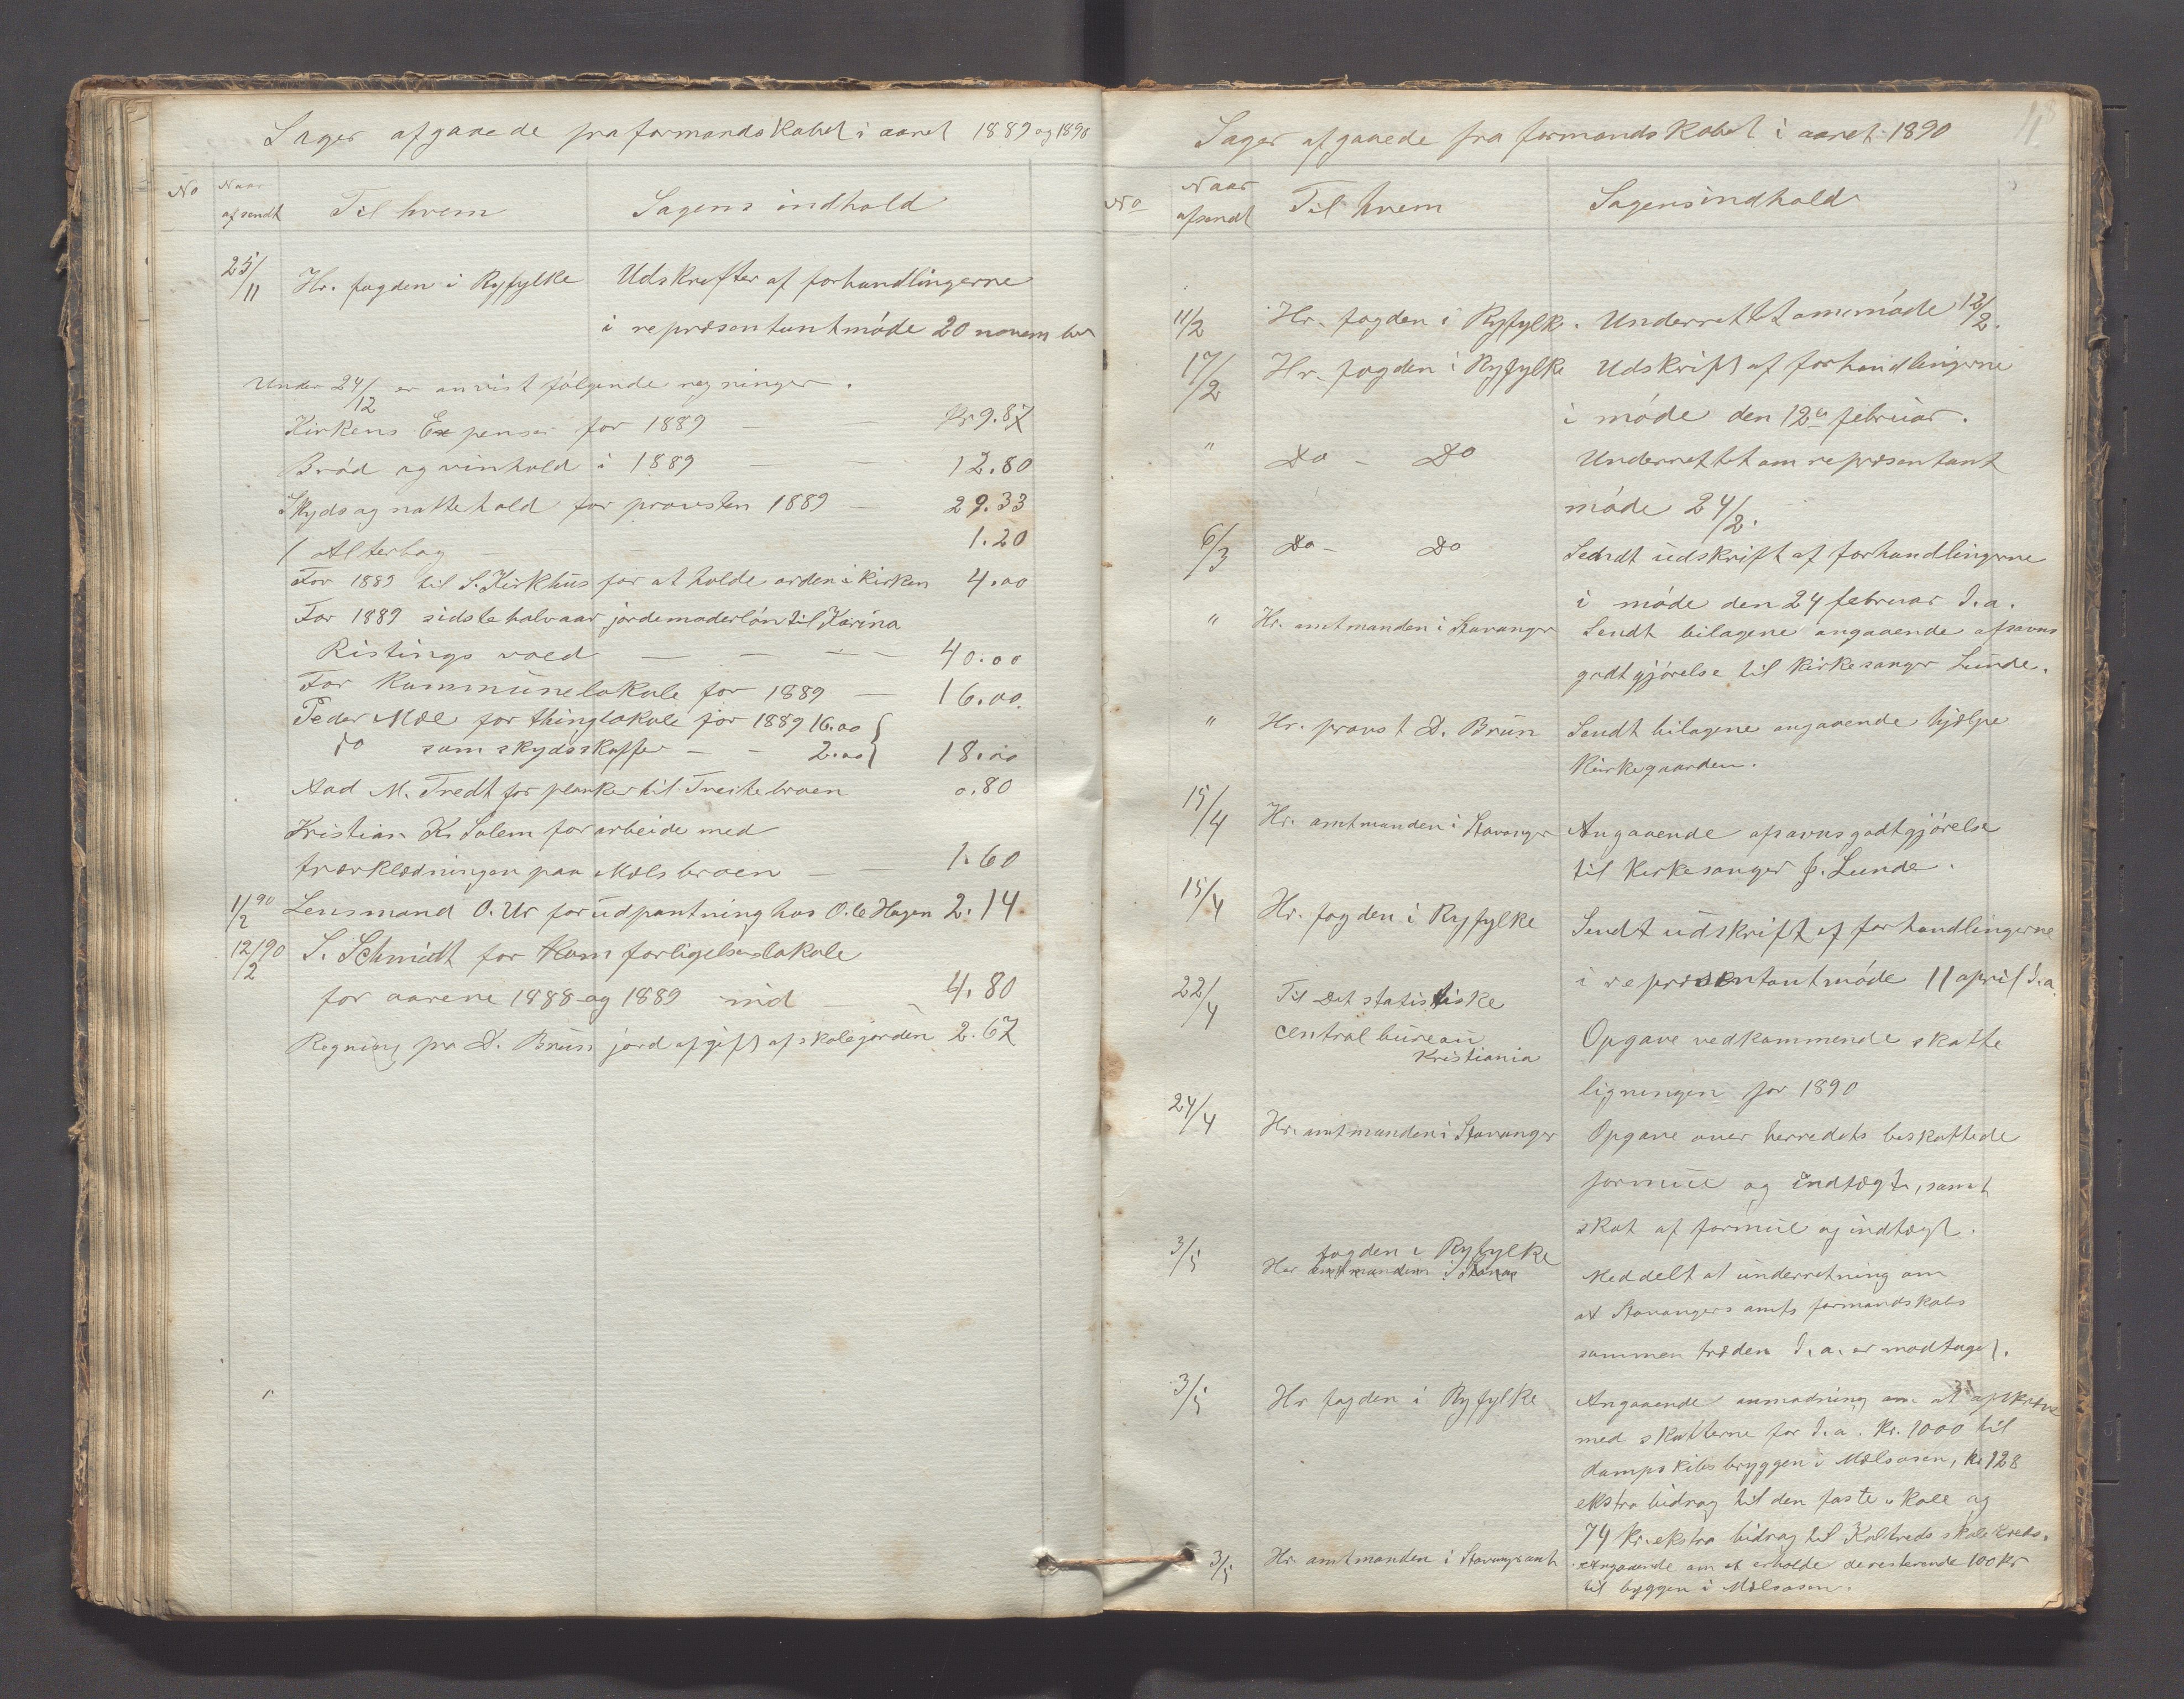 Sager afgaaede fra formandskabet i aaret 1889 og 1890
No Naar afsendt Til hvem Sagens indhold
25/11 Hr. fogden i Ryfylke Udskrifter af forhandlingerne
i repræsentantmøde 20 november
Under 24/12 er anvist følgende regninger.
Kirkens Expenser for 1889 — — Kr 9.87
Brød og vinhold i 1889 — — 12.80
Skyds og nattehold for provsten 1889 — 29.33
1 Alterbog — 1.20
For 1889 til S. Kirkhus for at holde orden i kirken 4.00
For 1889 sidste halvaar jordemoderløn til Karina
Ristingsvoed — — — — 40.00
For Kommunelokale for 1889 — 16.00
Peder Mæl for thinglokale for 1889 16.00
do som skydsskaffer — — 2.00 18.00
Aad M. Tredt for planker til Treitebroen 0.80
Kristian K. Solem for arbeide med
træklædningen paa Mælsbroen — — 1.60
1/2 90 Lensmand O. Ur for udpantning hos Ole Hagen 2.14
12/2 90 S. Schmidt for forligelseslokale
for aarene 1888 og 1889 ind — 4.80
Regning fra D. Bruun jordafgift af skolejorden 2.67
18
Sager afgaaede fra formandskabet i aaret 1890
No Naar afsendt Til hvem Sagens indhold
11/2 Hr. fogden i Ryfylke. Underrettet om møde 12/2.
17/2 Hr. fogden i Ryfylke Udskrift af forhandlingerne
i møde den 12te februar.
" Do — Do Underrettet om repræsentant
møde 24/2.
6/3 Do — Do Sendt udskrift af forhandlingerne
i møde den 24 februar d.a.
" Hr. amtmanden i Stavanger Sendt bilagene angaaende afsavns
godtgjørelse til kirkesanger Lunde.
" Hr. provst D. Bruun Sendt bilagene angaaende hjælpe
kirkegaarden.
15/4 Hr. amtmanden i Stavanger Angaaende afsavnsgodtgjørelse
til kirkesanger J. Lunde.
15/4 Hr. fogden i Ryfylke Sendt udskrift af forhandlingerne
i repræsentantmøde 11 april d.a.
22/4 Til Det statistiske
centralbureau Opgave vedkommende skatte
Kristiania
ligningen for 1890
24/4 Hr. amtmanden i Stavanger Opgave over herredets beskattede
formue og indtægt, samt
skat af formue og indtægt.
3/5 Her fogden i Ryfylke
amtmanden i Meddelt at underretning om
at Stavangers amts formandskabs
sammentræden d.a. er modtaget.
3/5 Hr fogden i Ryfylke Angaaende anmodning om at opkræve
med skatterne for d.a. Kr. 1000 til
dampskibsbryggen i Mælsosen, Kr 128
ekstra bidrag til den faste skole og
74 kr. ekstra bidrag til Kaltveds skolekreds.
3/5 Hr. amtmanden i Stavangeramt Angaaende om at erholde de resterende 100 Kr
til bryggen i Mælsosen.